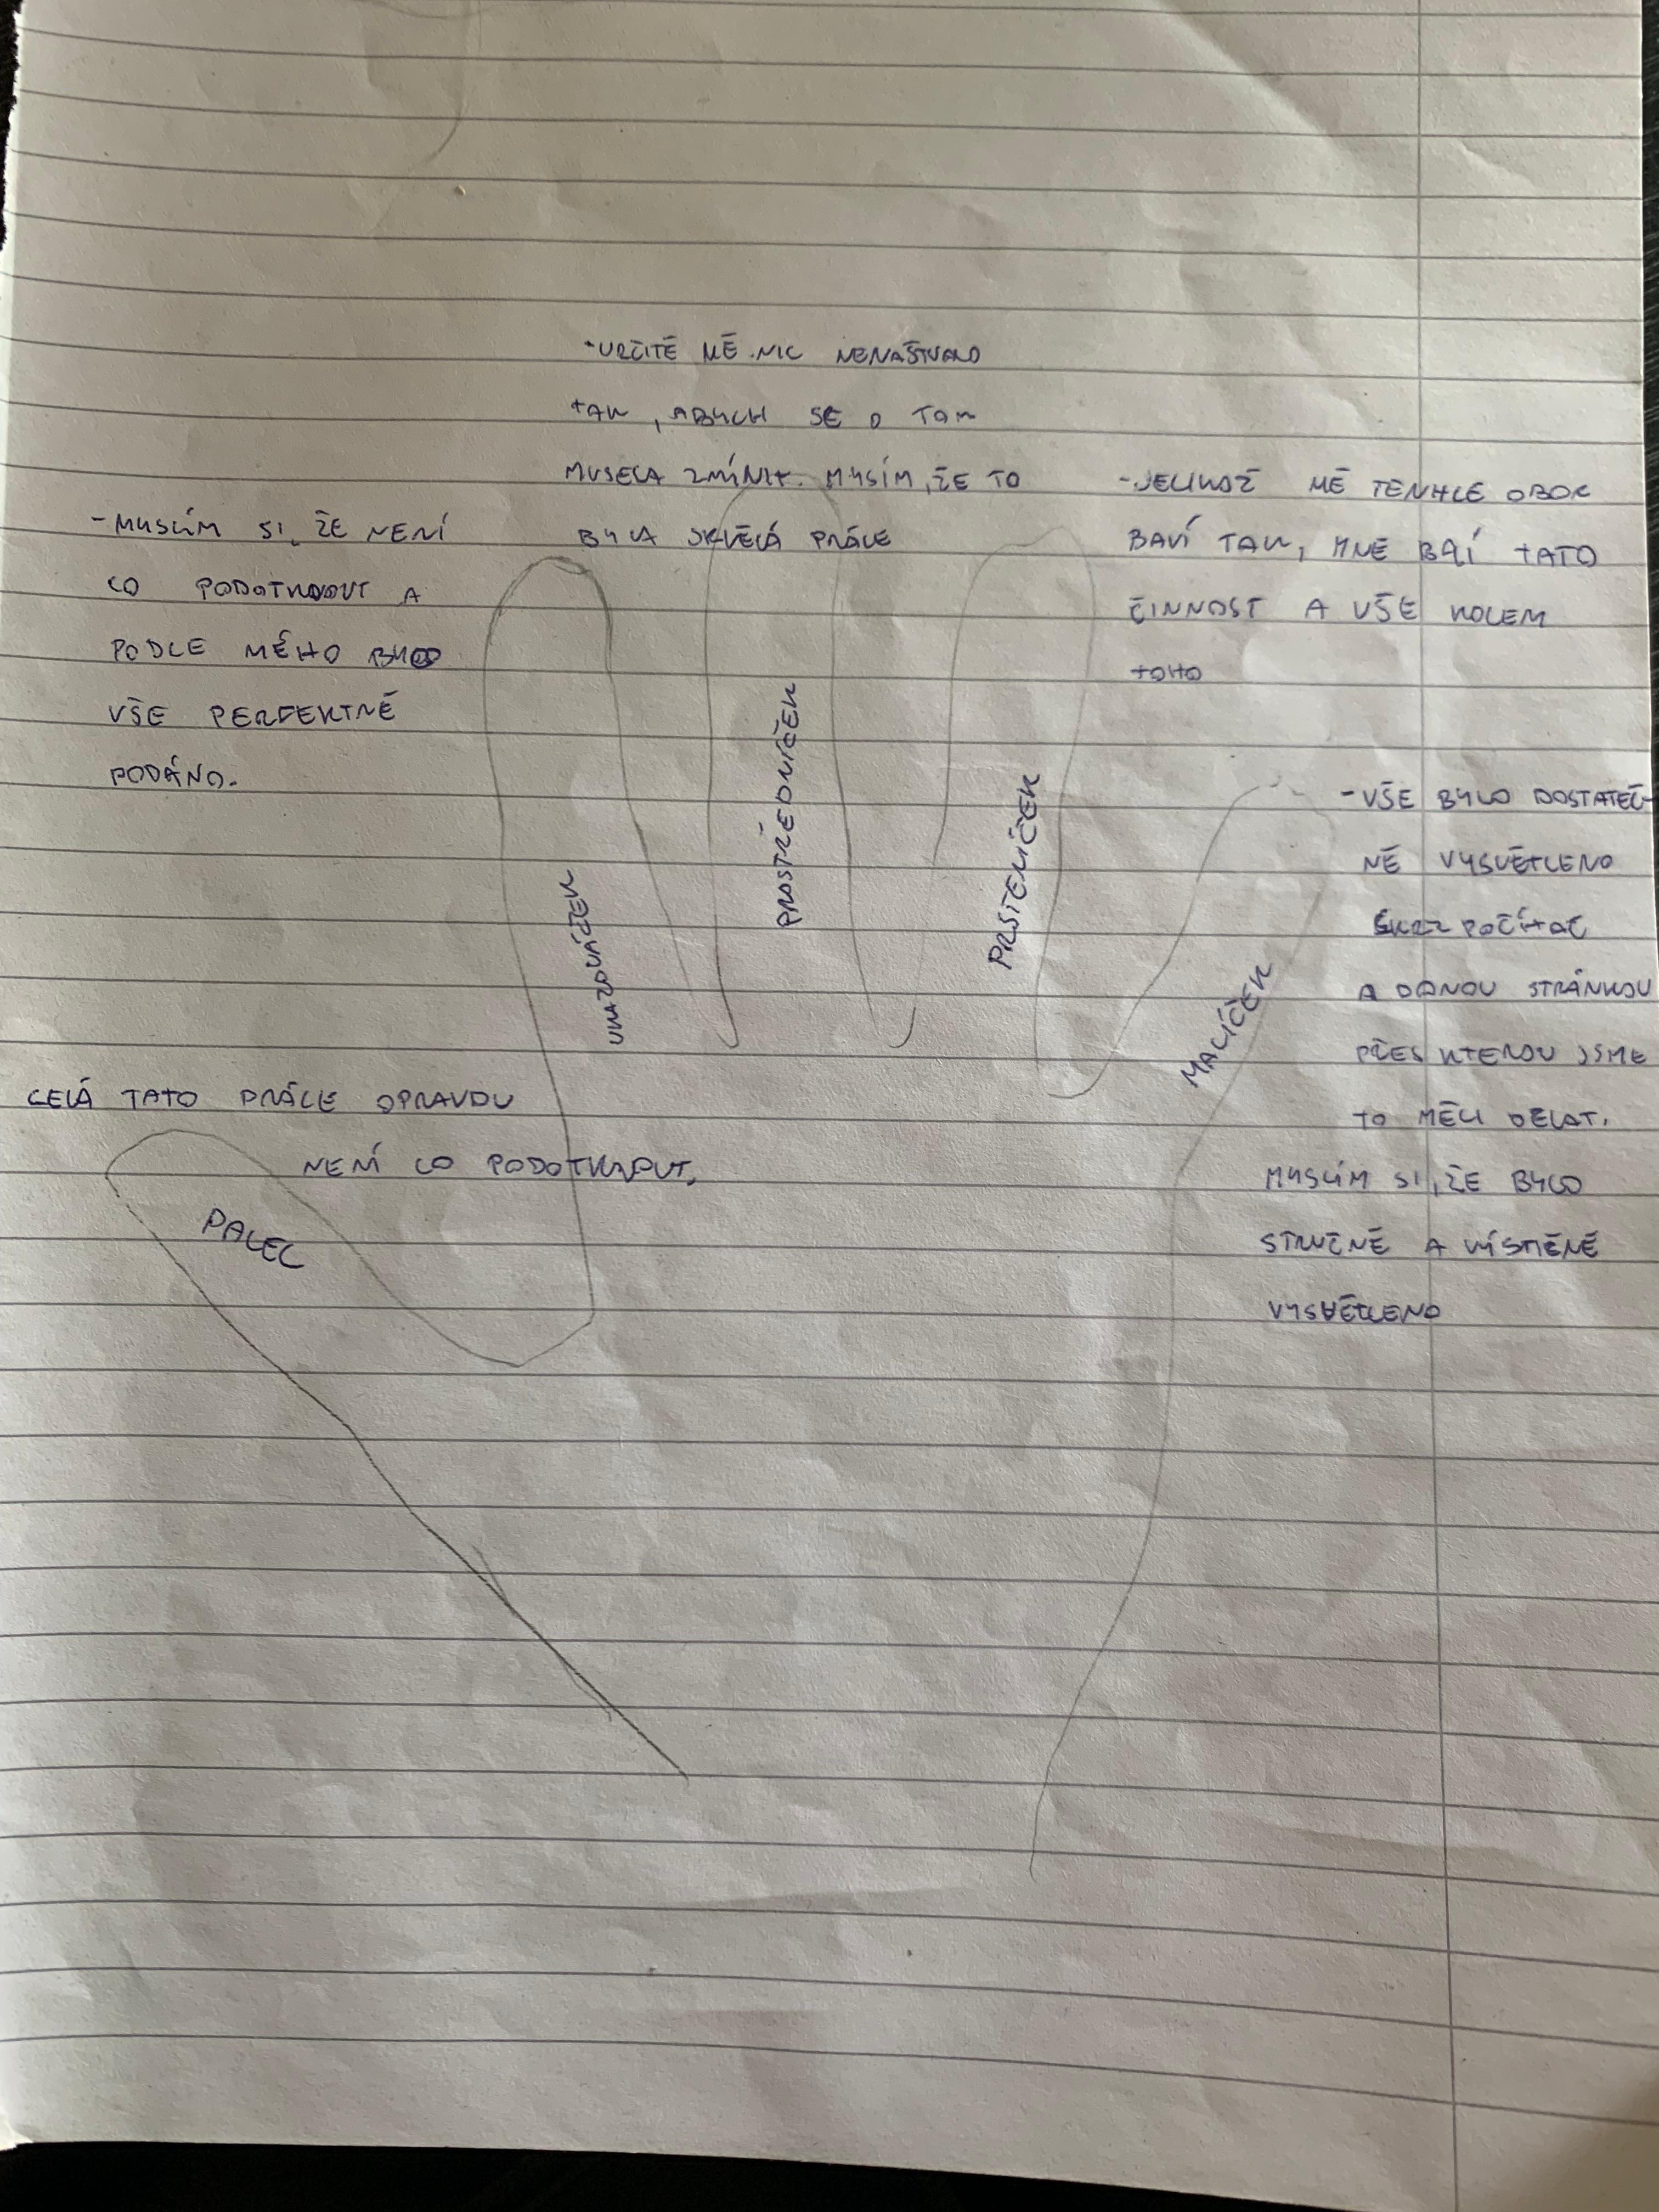 -URČITĚ MĚ NIC NENAŠTVALO
TAK, ABYCH SE O TOM
MUSELA ZMÍNIT. MYSÍM, ŽE TO
BYLA SKVĚLÁ PRÁCE
-JELIKOŽ MĚ TENHLE OBOR
BAVÍ TAK, MNE BAÍ TATO
ČINNOST A VŠE KOLEM
TOHO
-MYSLÍM SI, ŽE NENÍ
CO PODOTKNOUT A
PODLE MÉHO BYLO
VŠE PERFEKTNĚ
PODÁNO.
UKAZOVÁČEK
PROSTŘEDNÍČEK
PRSTENÍČEK
MALÍČEK
-VŠE BYLO DOSTATEČ-
NĚ VYSVĚTLENO
SKRZ POČÍTAČ
A DANOU STRÁNKOU
PŘES KTEROU JSME
TO MĚLI DĚLAT.
MYSLÍM SI, ŽE BYLO
STRUČNĚ A VÝSTIŽNĚ
VYSVĚTLENO
CELÁ TATO PRÁCE OPRAVDU
NENÍ CO PODOTKNOUT.
PALEC